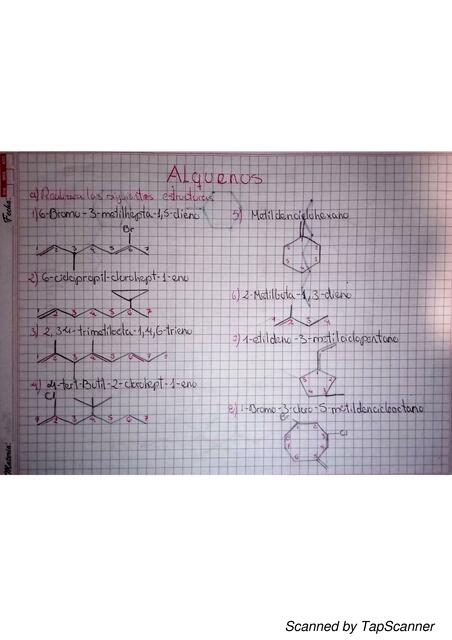 Alquenos
a) Realizar las siguientes estructuras
1) 6-Bromo-3-metilhepta-1,5-dieno
Br
1 2 3 4 5 6 7
2) 6-ciclopropil-clorohept-1-eno
1 2 3 4 5 6 7
3) 2,3,4-trimetilocta-1,4,6-trieno
4) 4-tert-Butil-2-clorohept-1-eno
Cl
1 2 3 4 5 6 7
5) Metildenciclohexano
6) 2-Metilbuta-1,3-dieno
1 2 3 4
7) 1-etildeno-3-metilciclopentano
8) 1-Bromo-3-cloro-5-metildenciclooctano
Br
Cl
Fecha:
Materia:
Scanned by TapScanner